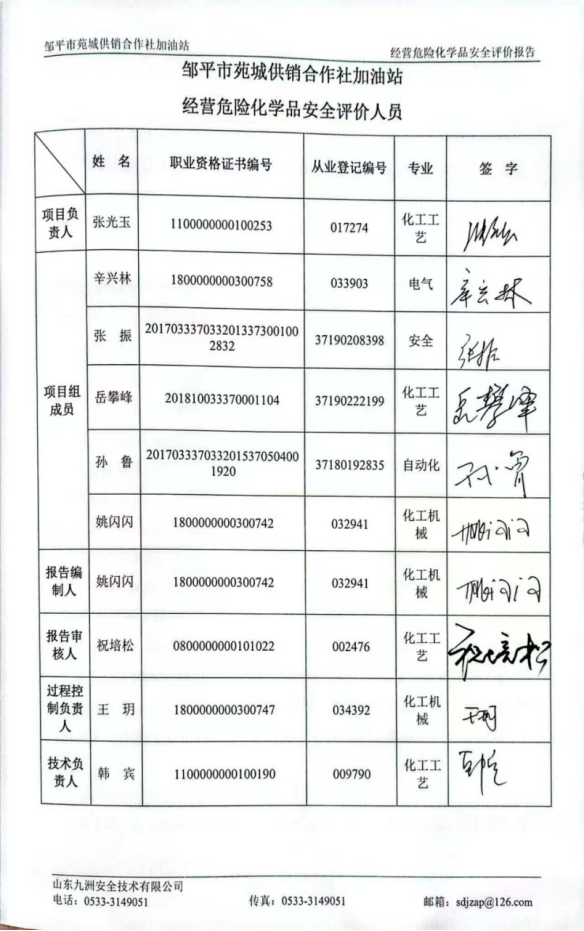 邹平市苑城供销合作社加油站 经营危险化学品安全评价报告
邹平市苑城供销合作社加油站
经营危险化学品安全评价人员
姓 名 职业资格证书编号 从业登记编号 专业 签 字
项目负责人 张光玉 1100000000100253 017274 化工工艺
项目组成员
辛兴林 1800000000300758 033903 电气 辛兴林
张 振 201703337033201337300100 2832 37190208398 安全 张振
岳攀峰 201810033370001104 37190222199 化工工艺 岳攀峰
孙 鲁 201703337033201537050400 1920 37180192835 自动化 孙鲁
姚闪闪 1800000000300742 032941 化工机械
报告编制人 姚闪闪 1800000000300742 032941 化工机械
报告审核人 祝培松 0800000000101022 002476 化工工艺 祝培松
过程控制负责人 王 玥 1800000000300747 034392 化工机械 王玥
技术负责人 韩 宾 1100000000100190 009790 化工工艺
山东九洲安全技术有限公司
电话：0533-3149051 传真：0533-3149051 邮箱：sdjzap@126.com